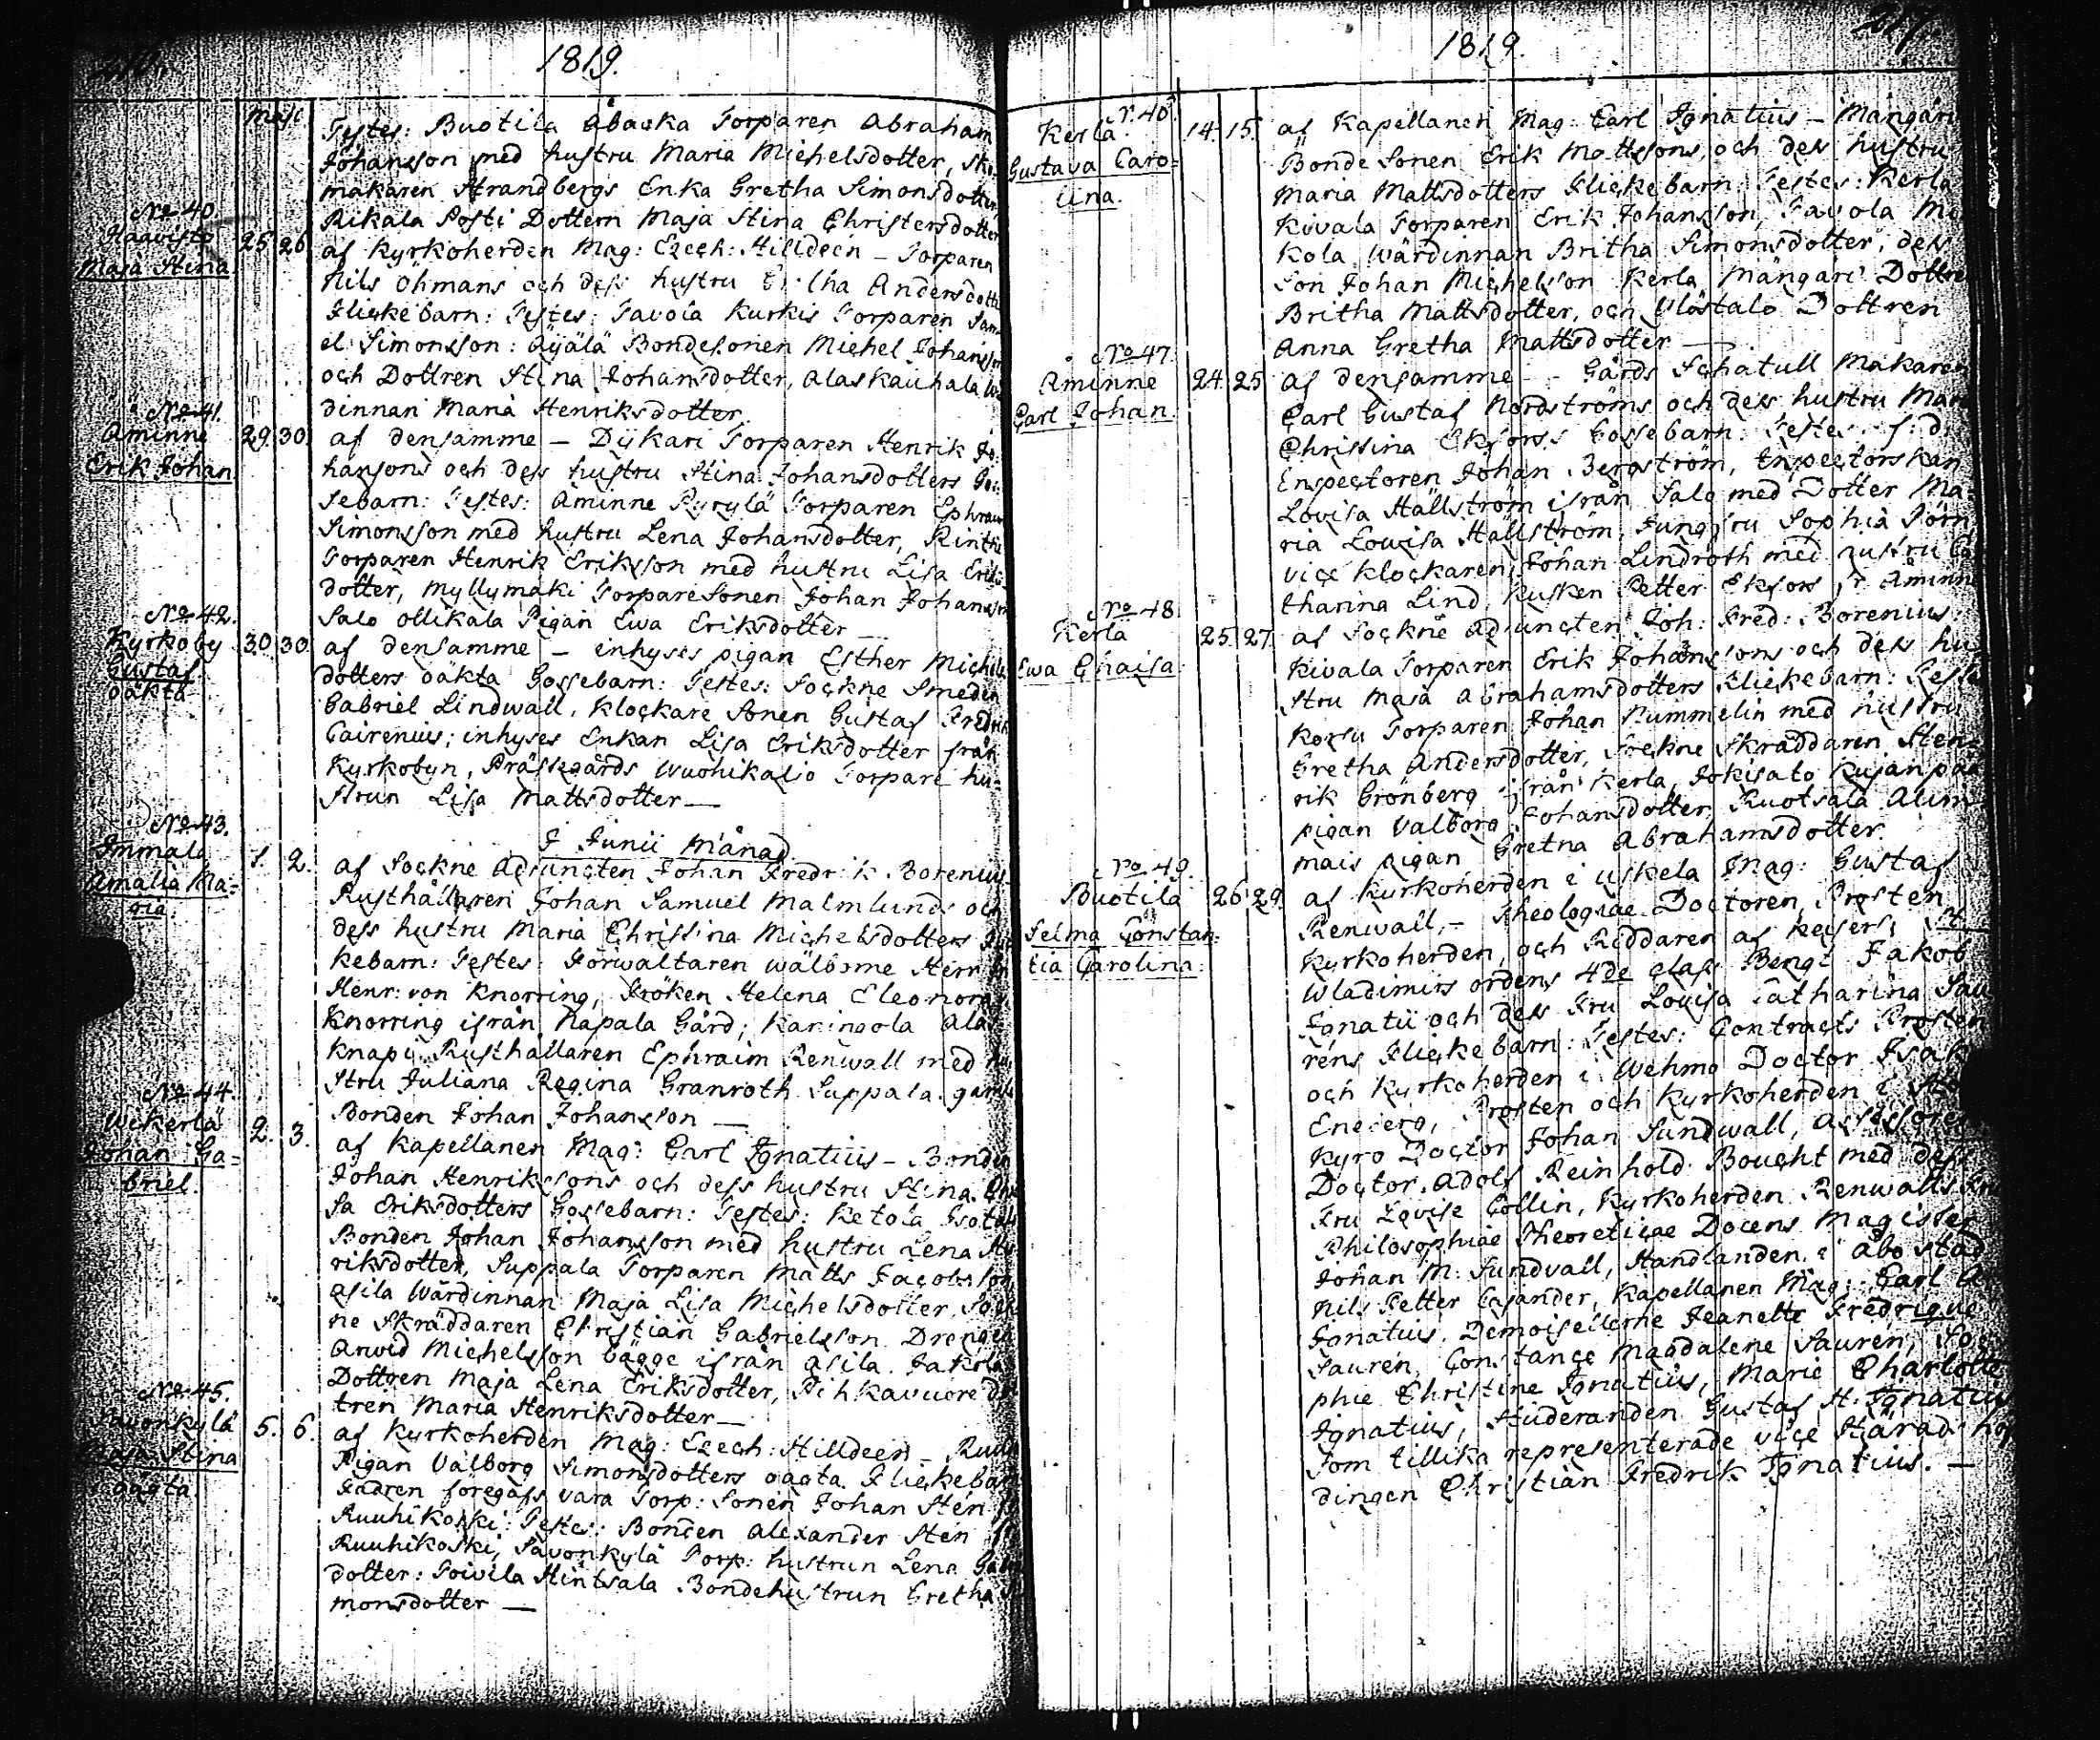 1819.
Maji
Testes: Buotila Abaska Torparen Abraham
Johansson med hustru Maria Michelsdotter,
makaren Strandbergs Enka Gretha Simonsdotter
Rikala Posti Dottern Maja Stina Christersdotter
No 40.
Haavisto 25. 26. af Kyrkoherden Mag: Ezech: Hilldeen – Torparen
Maja Stina
Nils Öhmans och dess hustru Andersdotters
Flickebarn: Testes: Tavola Kurkis Torparen Samu
el Simonsson: Äijälä Bondesonen Michel Johansson
och Dottren Stina Johansdotter, Alaskauhala
dinnan Maria Henriksdotter.
No 41.
Aminne 29. 30. af densamme – Dijkari Torparen Henrik Jo-
Erik Johan
hansons och dess hustru Stina Johansdotters Gos-
sebarn: Testes: Aminne Pyrylä Torparen Ephraim
Simonsson med hustru Lena Johansdotter,
Torparen Henrik Eriksson med hustru Lisa Eriks
dotter, Myllymäki Torparesonen Johan Johansson
Salo Ollikala Pigan Ewa Eriksdotter –
No 42.
Kyrkoby 30. 30. af densamme – inhyses pigan Esther Michels
Gustaf
oäkta
dotters oäkta Gossebarn: Testes: Sockne Smeden
Gabriel Lindwall, Klockare Sonen Gustaf Fredrik
Cairenius; inhyses Enkan Lisa Eriksdotter från
Kyrkobyn, Prästegårds Wuohikalio Torpare hu-
strun Lisa Mattsdotter –
I Junii Månad
No 43.
Immala 1. 2. af Sockne Adjuncten Johan Fredrik Borenius
Amalia Ma-
ria.
Rusthållaren Johan Samuel Malmlunds och
dess hustru Maria Christina Michelsdotters Flic
kebarn: Testes: Förwaltaren wälborne Herr
Henr: von Knorring, Fröken Helena Eleonora
Knorring ifrån Kapala Gård; Kaningola Ala
Knapi Rusthållaren Ephraim Renwall med hu
stru Juliana Regina Granroth. Suppala gamla
Bonden Johan Johansson –
No 44.
Wekerlä 2. 3. af Kapellanen Mag: Carl Ignatius – Bonden
Johan Ga-
briel.
Johan Henrikssons och dess hustru Stina
sa Eriksdotters Gossebarn: Testes: Ketola Isotalo
Bonden Johan Johansson med hustru Lena Hen
riksdotter, Suppala Torparen Matts Jacobsson,
Asila Wärdinnan Maja Lisa Michelsdotter, Sock
ne Skräddaren Christian Gabrielsson Drengen
Arwid Michelsson bägge ifrån Asila. Jakola
Dottren Maja Lena Eriksdotter, Pihkavuore Dot
tren Maria Henriksdotter –
No 45.
Savonkylä 5. 6. af Kyrkoherden Mag: Ezech: Hilldeen –
Maja Stina
oägta.
Pigan Valborg Simonsdotters oägta Flickebarn
Fadren föregafs vara Torp: Sonen Johan Sten
Ruuhikoski: Testes: Bonden Alexander Sten
Ruuhikoski, Savonkylä Torp: hustrun Lena
dotter: Toivila Hintsala Bondehustrun Gretha Si
monsdotter –
1819.
No 46.
Kerla 14. 15. af Kapellanen Mag: Carl Ignatius – Mangari
Gustava Caro-
lina.
Bonde Sonen Erik Mattssons och dess hustru
Maria Mattsdotters Flickebarn: Testes: Kerla
Kivala Torparen Erik Johansson, Tavola
kola Wärdinnan Britha Simonsdotter, dess
Son Johan Michelsson Kerla Mangari Dottren
Britha Mattsdotter, och Ylöstalo Dottren
Anna Gretha Mattsdotter –
No 47.
Aminne 24. 25. af densamme – Gårds Schatull Makaren
Carl Johan.
Carl Gustaf Nordströms och dess hustru
Christina Ekfors's Gossebarn: Testes: f: d:
Inspectoren Johan Bergström, Inspectorskan
Lovisa Hällström ifrån Salo med Dotter Ma-
ria Lovisa Hällström, Jungfru Sophia
vice klockaren Johan Lindroth med hustru Ca
tharina Lind, Kusken Petter Ekfors fr. Åminne
No 48.
Kerla 25. 27. af Sockne Adjuncten Joh: Fred: Borenius
Ewa Chaisa
Kivala Torparen Erik Johanssons och dess hu
stru Maja Abrahamsdotters Flickebarn: Testes
Korsu Torparen Johan Nummelin med hustru
Gretha Andersdotter, Sockne Skräddaren Hen-
rik Grönberg ifrån Kerla, Jokisato Kujanpää
pigan Valborg Johansdotter, Ruotsala
mais pigan Gretha Abrahamsdotter.
No 49.
Buotila 26. 29. af Kyrkoherden i Uskela Mag: Gustaf
Selma Constan-
tia Carolina.
Renwall, – Theologiae Doctoren, Prosten
Kyrkoherden, och Riddaren af Keiserl: St
Wladimirs ordens 4de class Bengt Jakob
Ignatii och dess Fru Lovisa Catharina Sau
réns Flickebarn: Testes: Contracts Prosten
och Kyrkoherden i Wehmo Doctor Isak
Eneberg, Prosten och Kyrkoherden i
Kyro Doctor Johan Sundwall, Assessoren
Doctor Adolf Reinhold Bought med dess
Fru Lovise Collin, Kyrkoherden Renwalls Fru
Philosophiae Theoreticae Docens Magister
Johan M: Sundvall, Handlanden i Åbo stad
Nils Petter Cajander, Kapellanen Mag: Carl
Ignatius, Demoisellerne Jeanette Fredrique
Saurén, Constance Magdalene Saurén, So
phie Christine Ignatius, Marie Charlotte
Ignatius, Studeranden Gustaf H: Ignatius
som tillika representerade vice Härads höf
dingen Christian Fredrik Ignatius. –